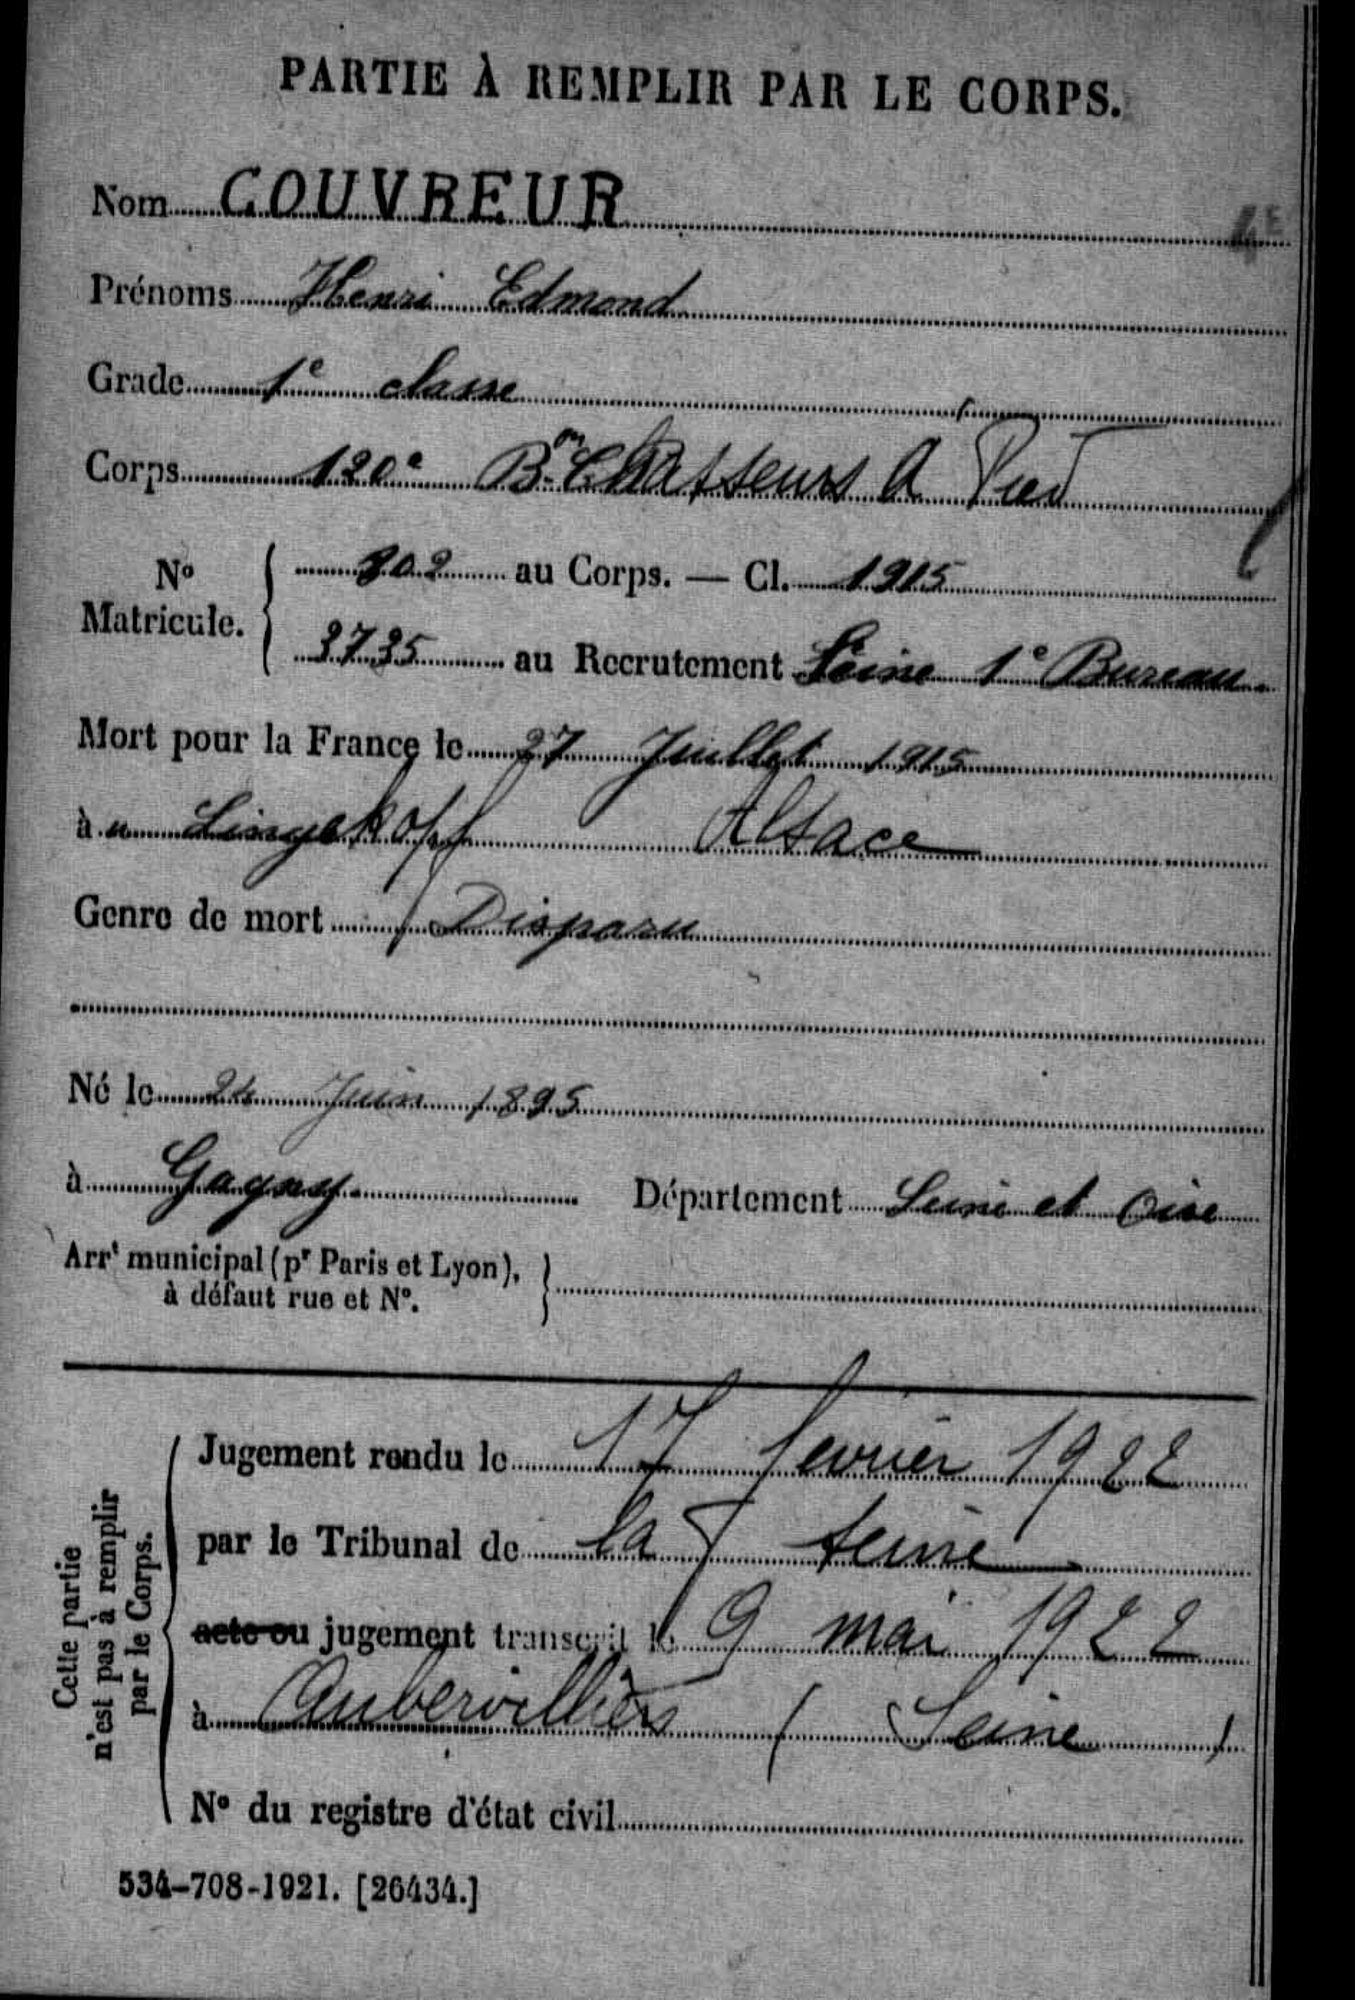 PARTIE À REMPLIR PAR LE CORPS.
Nom COUVREUR
4E
Prénoms Henri Edmond
Grade 1e classe
Corps 120e Bon Chasseurs A Pied
No Matricule. 202 au Corps. — Cl. 1915
3735 au Recrutement Seine 1e Bureau.
Mort pour la France le 27 Juillet 1915
à u Lingekopf Alsace
Genre de mort Disparu
Né le 24 Juin 1895
à Gagny. Département Seine et Oise
Arrt municipal (pr Paris et Lyon), à défaut rue et No.
Cette partie n'est pas à remplir par le Corps.
Jugement rendu le 17 fevrier 1922
par le Tribunal de la Seine
acte ou jugement transcrit le 9 mai 1922
à Aubervilliers (Seine)
No du registre d'état civil
534-708-1921. [26434.]